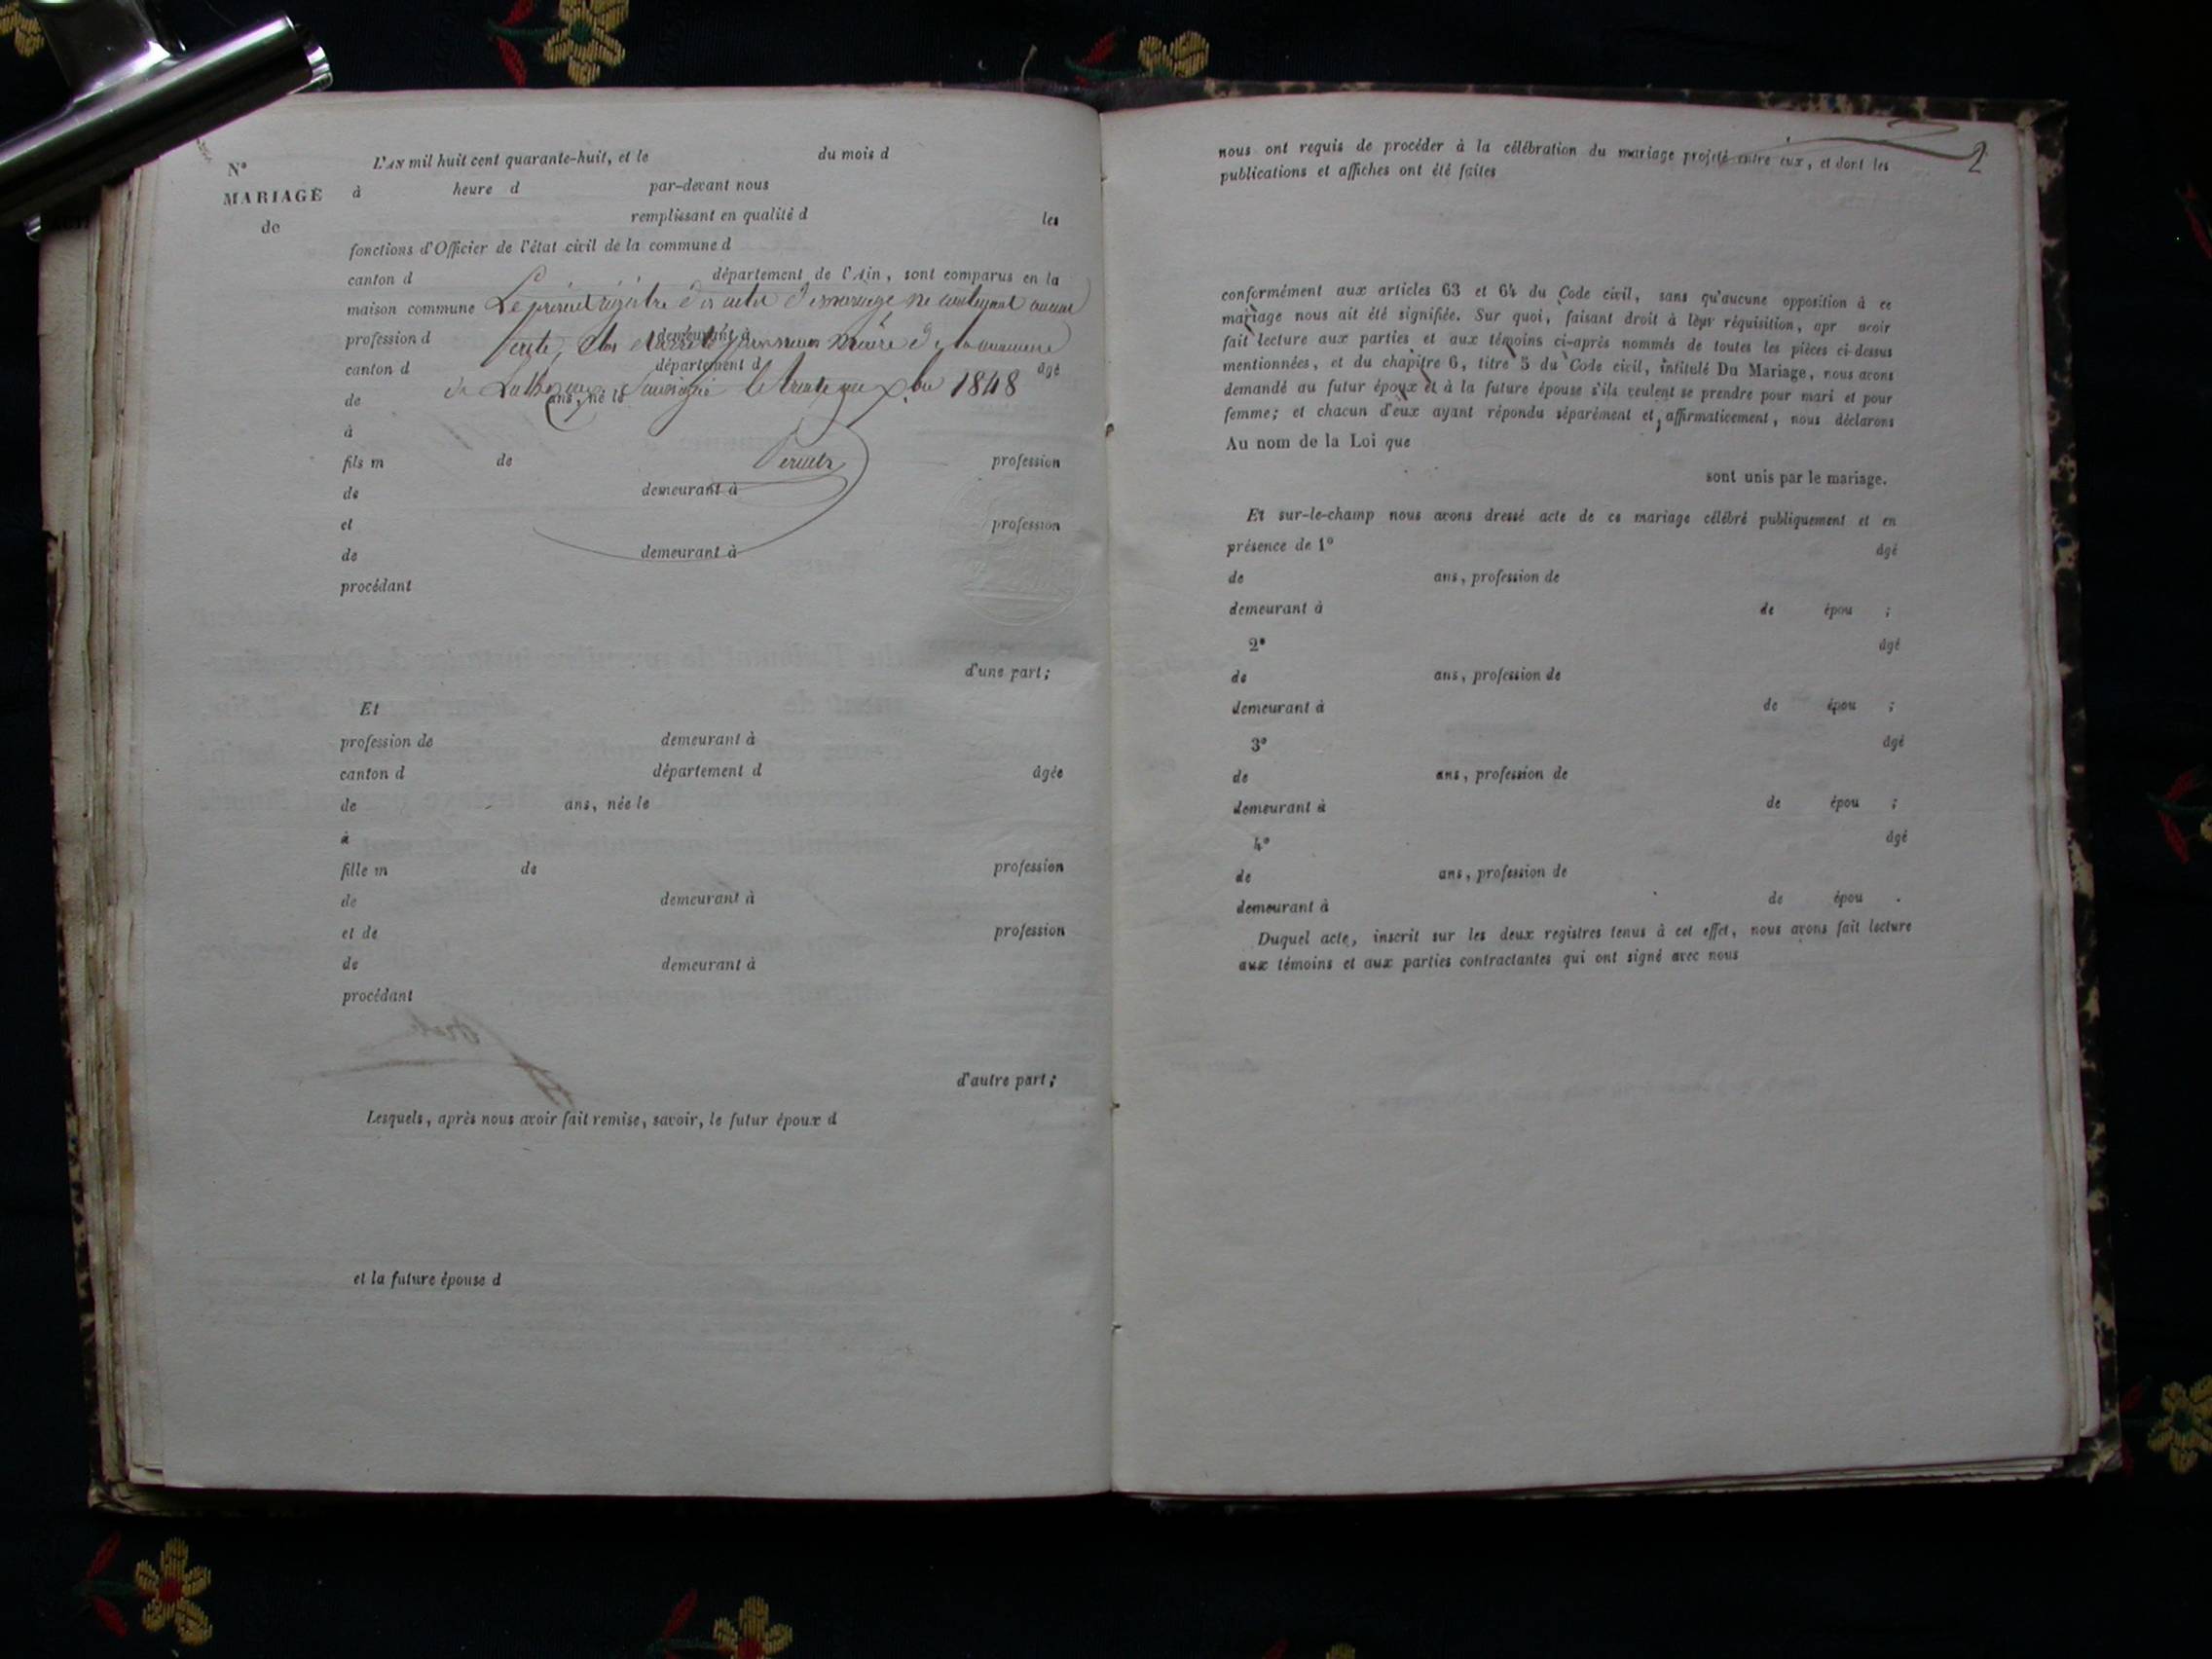 N° L'AN mil huit cent quarante-huit, et le du mois d
MARIAGE à heure d par-devant nous
de remplissant en qualité d les
fonctions d'Officier de l'état civil de la commune d
canton d département de l'Ain, sont comparus en la
maison commune Le présent registre des actes de mariage ne contenant aucun
profession d demeurant à
acte, clos et arrêté par nous maire de la commune
canton d département d âgé
de ans, né le
de le trente un Xbre 1848
à
fils m de profession
de demeurant à
et profession
de demeurant à
procédant
d'une part;
Et
profession de demeurant à
canton d département d âgée
de ans, née le
à
fille m de profession
de demeurant à
et de profession
de demeurant à
procédant
d'autre part;
Lesquels, après nous avoir fait remise, savoir, le futur époux d
et la future épouse d
2
nous ont requis de procéder à la célébration du mariage projeté entre eux, et dont les
publications et affiches ont été faites
conformément aux articles 63 et 64 du Code civil, sans qu'aucune opposition à ce
mariage nous ait été signifiée. Sur quoi, faisant droit à leur réquisition, apr avoir
fait lecture aux parties et aux témoins ci-après nommés de toutes les pièces ci-dessus
mentionnées, et du chapitre 6, titre 5 du Code civil, intitulé Du Mariage, nous avons
demandé au futur époux et à la future épouse s'ils veulent se prendre pour mari et pour
femme; et chacun d'eux ayant répondu séparément et affirmativement, nous déclarons
Au nom de la Loi que
sont unis par le mariage.
Et sur-le-champ nous avons dressé acte de ce mariage célébré publiquement et en
présence de 1° âgé
de ans, profession de
demeurant à de épou ;
2° âgé
de ans, profession de
demeurant à de épou ;
3° âgé
de ans, profession de
demeurant à de épou ;
4° âgé
de ans, profession de
demeurant à de épou .
Duquel acte, inscrit sur les deux registres tenus à cet effet, nous avons fait lecture
aux témoins et aux parties contractantes qui ont signé avec nous